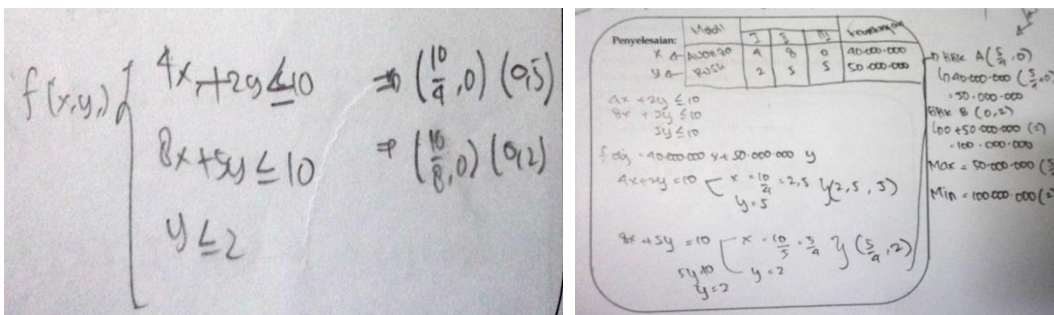 f(x,y)
4x+2y ≤ 10 ⇒ (10/4, 0) (0,5)
8x+5y ≤ 10 ⇒ (10/8, 0) (0,2)
y ≤ 2
Penyelesaian:
Modal I II III keuntungan
x 4 8 0 40.000.000
y 2 5 5 50.000.000
4x + 2y ≤ 10
8x + 5y ≤ 10
5y ≤ 10
40.000.000 x + 50.000.000 y
4x+2y = 10 x = 10/4 = 2,5 y = 5 (2,5, 5)
8x + 5y = 10 x = 10/5 = 5/4 (5/4, 2)
5y = 10 y = 2
y = 2
A (5/4, 0)
40.000.000 (5/4 + 0)
= 50.000.000
B (0,2)
0 + 50.000.000 (2)
= 100.000.000
Max = 50.000.000
Min = 100.000.000